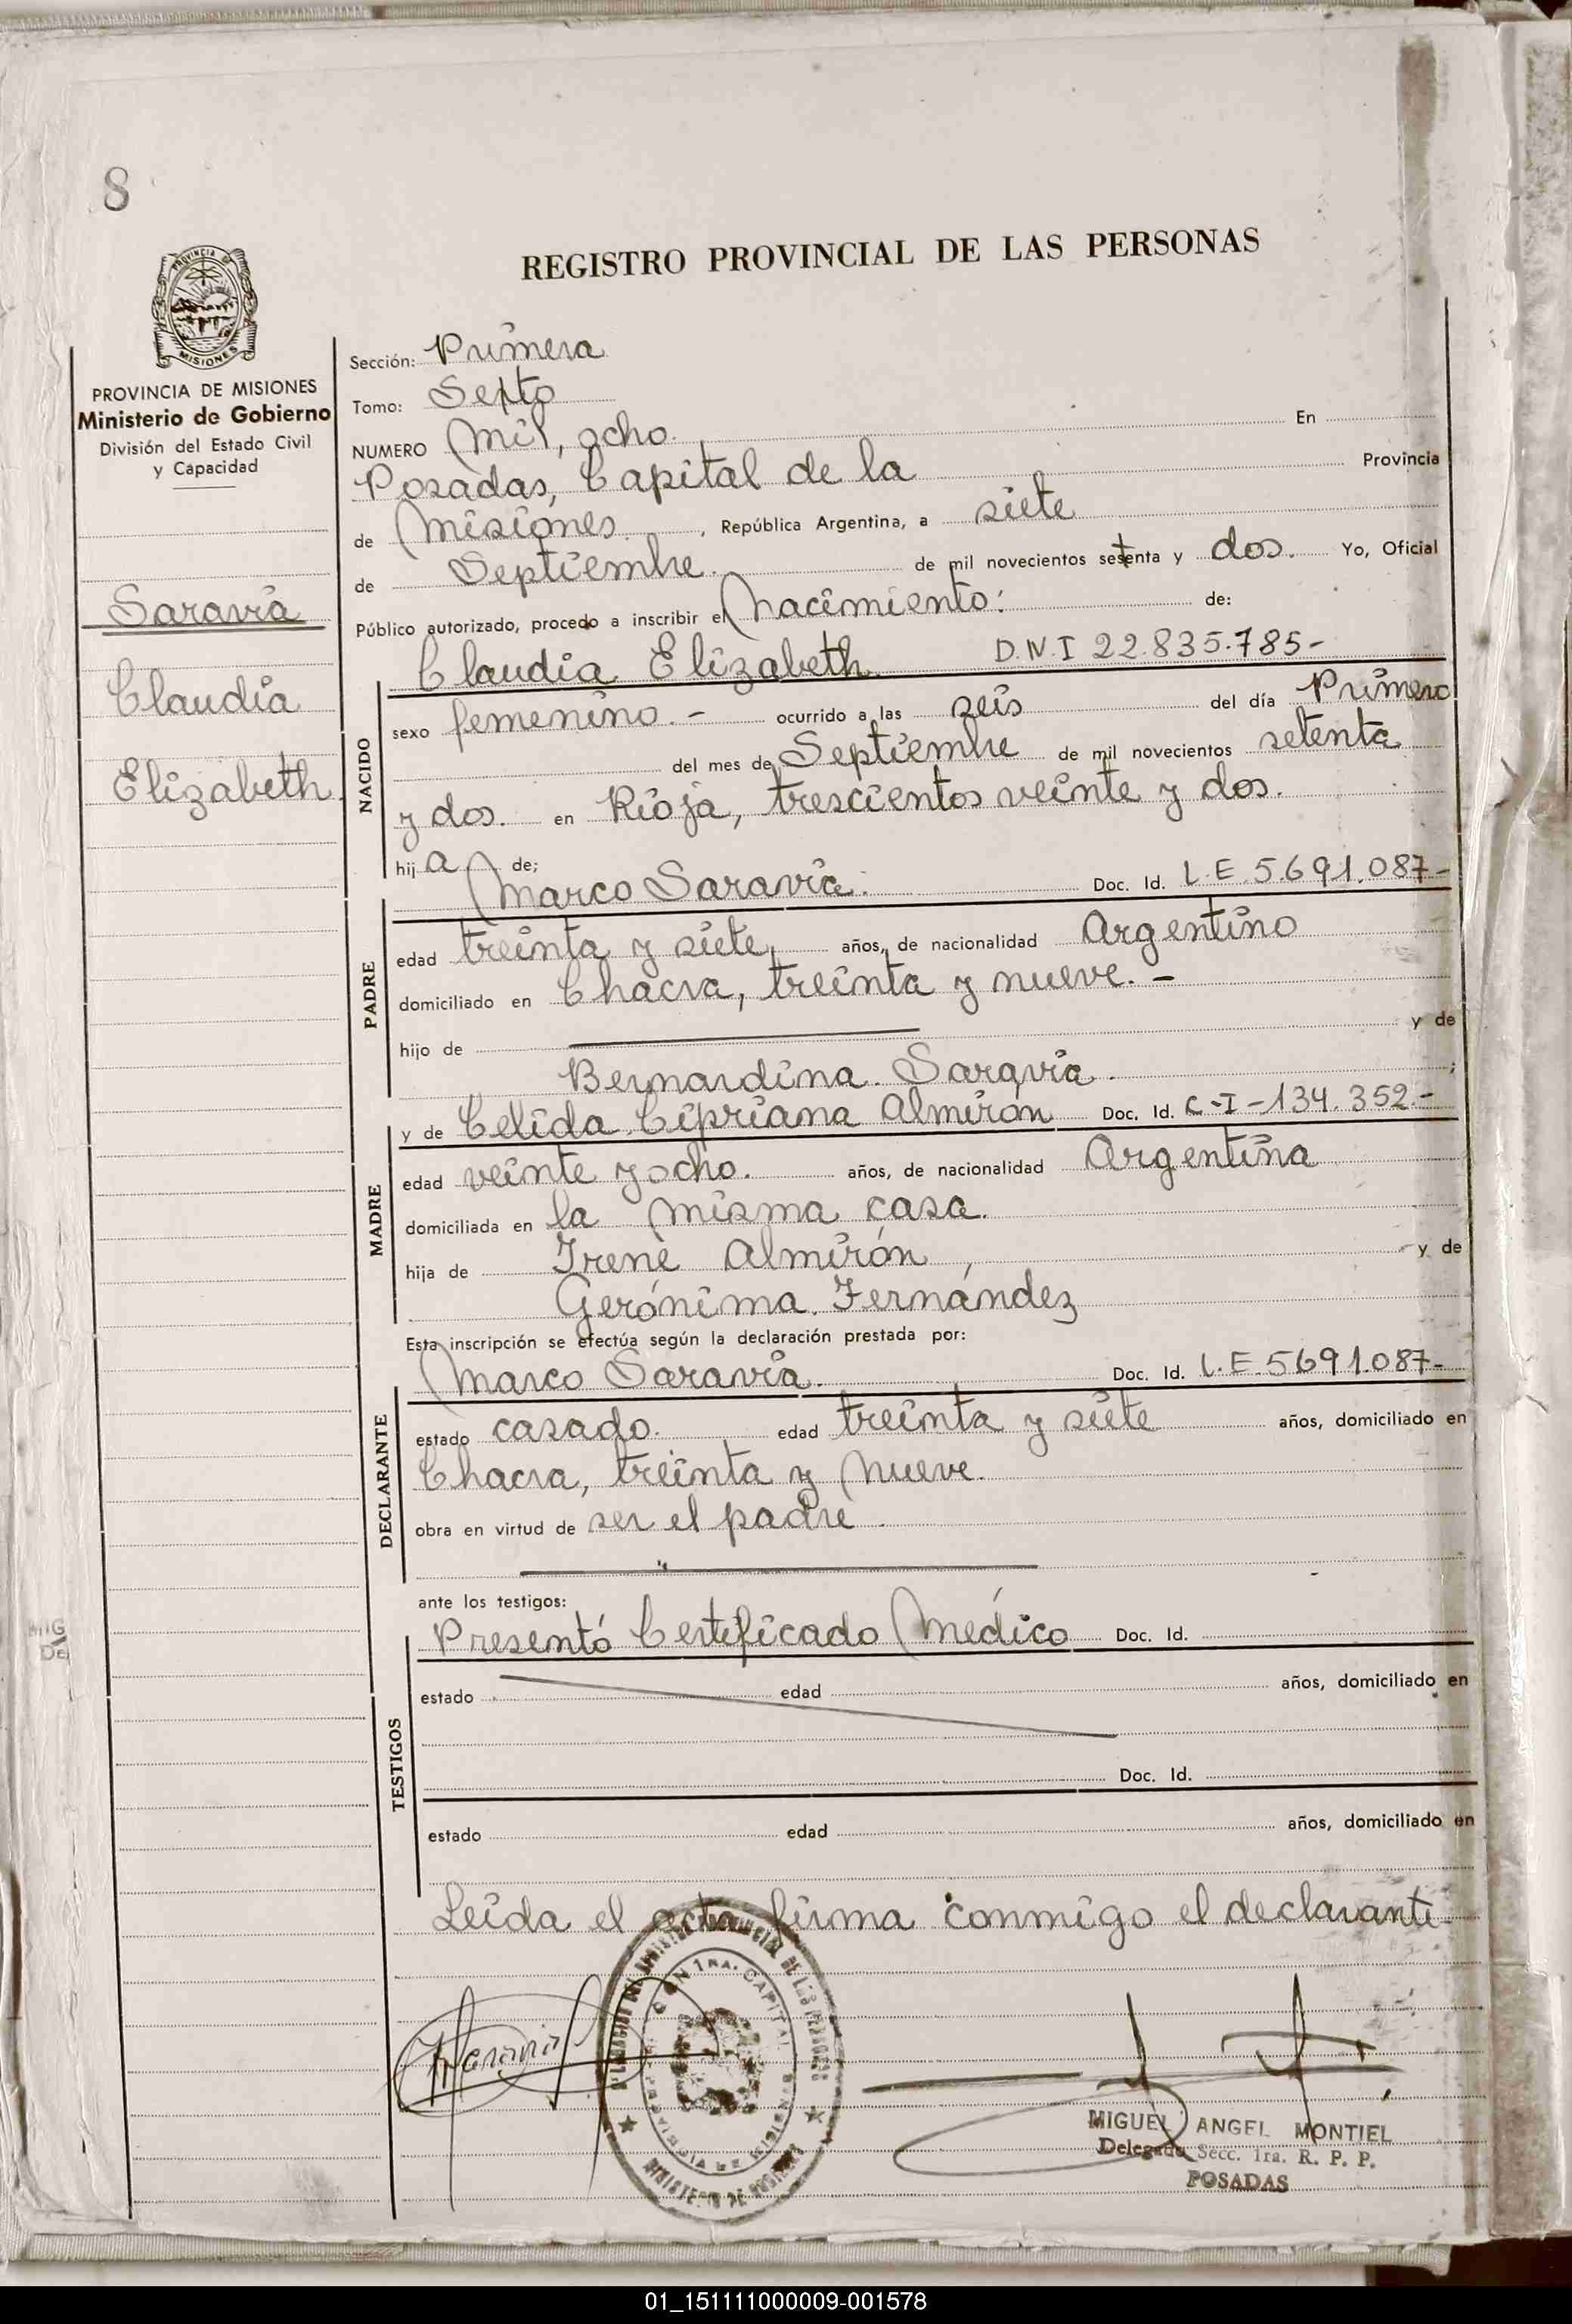 8
REGISTRO PROVINCIAL DE LAS PERSONAS
PROVINCIA DE MISIONES
Ministerio de Gobierno
División del Estado Civil
y Capacidad
Saravia
Claudia
Elizabeth
Sección: Primera
Tomo: Sexto
NUMERO Mil, ocho. En
Posadas, Capital de la Provincia
de Misiones. , República Argentina, a siete
de Septiembre. de mil novecientos setenta y dos. Yo, Oficial
Público autorizado, procedo a inscribir el Nacimiento: de:
Claudia Elizabeth. D.N.I 22.835.785-
NACIDO
sexo femenino.- ocurrido a las seis del día Primero
del mes de Septiembre de mil novecientos setenta
y dos. en Rioja, trescientos veinte y dos.
hija de;
Marco Saravia. Doc. Id. L.E.5.691.087-
PADRE
edad treinta y siete, años, de nacionalidad Argentino
domiciliado en Chacra, treinta y nueve.-
hijo de y de
Bernardina Saravia. ;
y de Celida Cipriana Almirón Doc. Id. C-I-134.352.-
MADRE
edad veinte y ocho. años, de nacionalidad Argentina
domiciliada en la misma casa.
hija de Irene Almirón, y de
Gerónima Fernández
Esta inscripción se efectúa según la declaración prestada por:
Marco Saravia. Doc. Id. L.E.5.691.087-
DECLARANTE
estado casado. edad treinta y siete años, domiciliado en
Chacra, treinta y nueve.
obra en virtud de ser el padre.
ante los testigos:
TESTIGOS
Presentó Certificado Médico Doc. Id.
estado edad años, domiciliado en
Doc. Id.
estado edad años, domiciliado en
Leida el acta firma conmigo el declarante
MIGUEL ANGEL MONTIEL
Delegado Secc. 1ra. R. P. P.
POSADAS
01_151111000009-001578